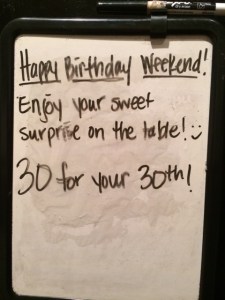 Happy Birthday Weekend!
Enjoy your sweet
surprise on the table! :)
30 for your 30th!